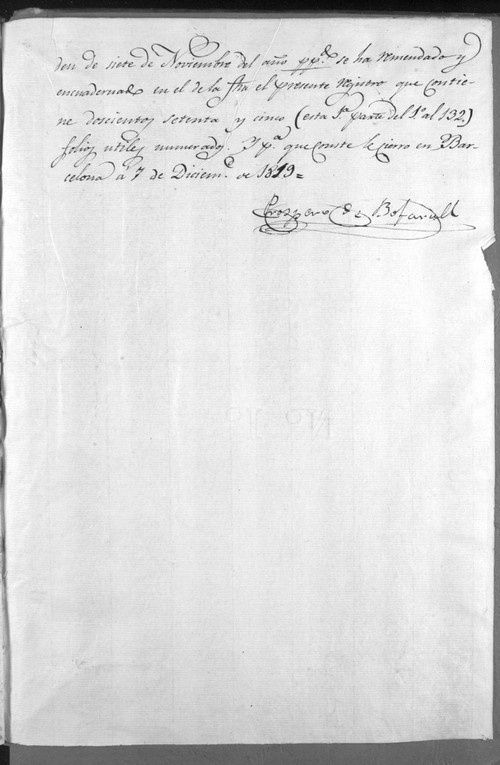 den de siete de Noviembre del año pp.do se ha remendado y
encuadernado en el de la fha el presente registro que contie-
ne doscientos setenta y cinco (esta 1.a parte del 1.o al 132)
folios utiles numerados. Y p.a que conste le cierro en Bar-
celona a 7 de Diciem.e de 1819=
Prospero de Bofarull